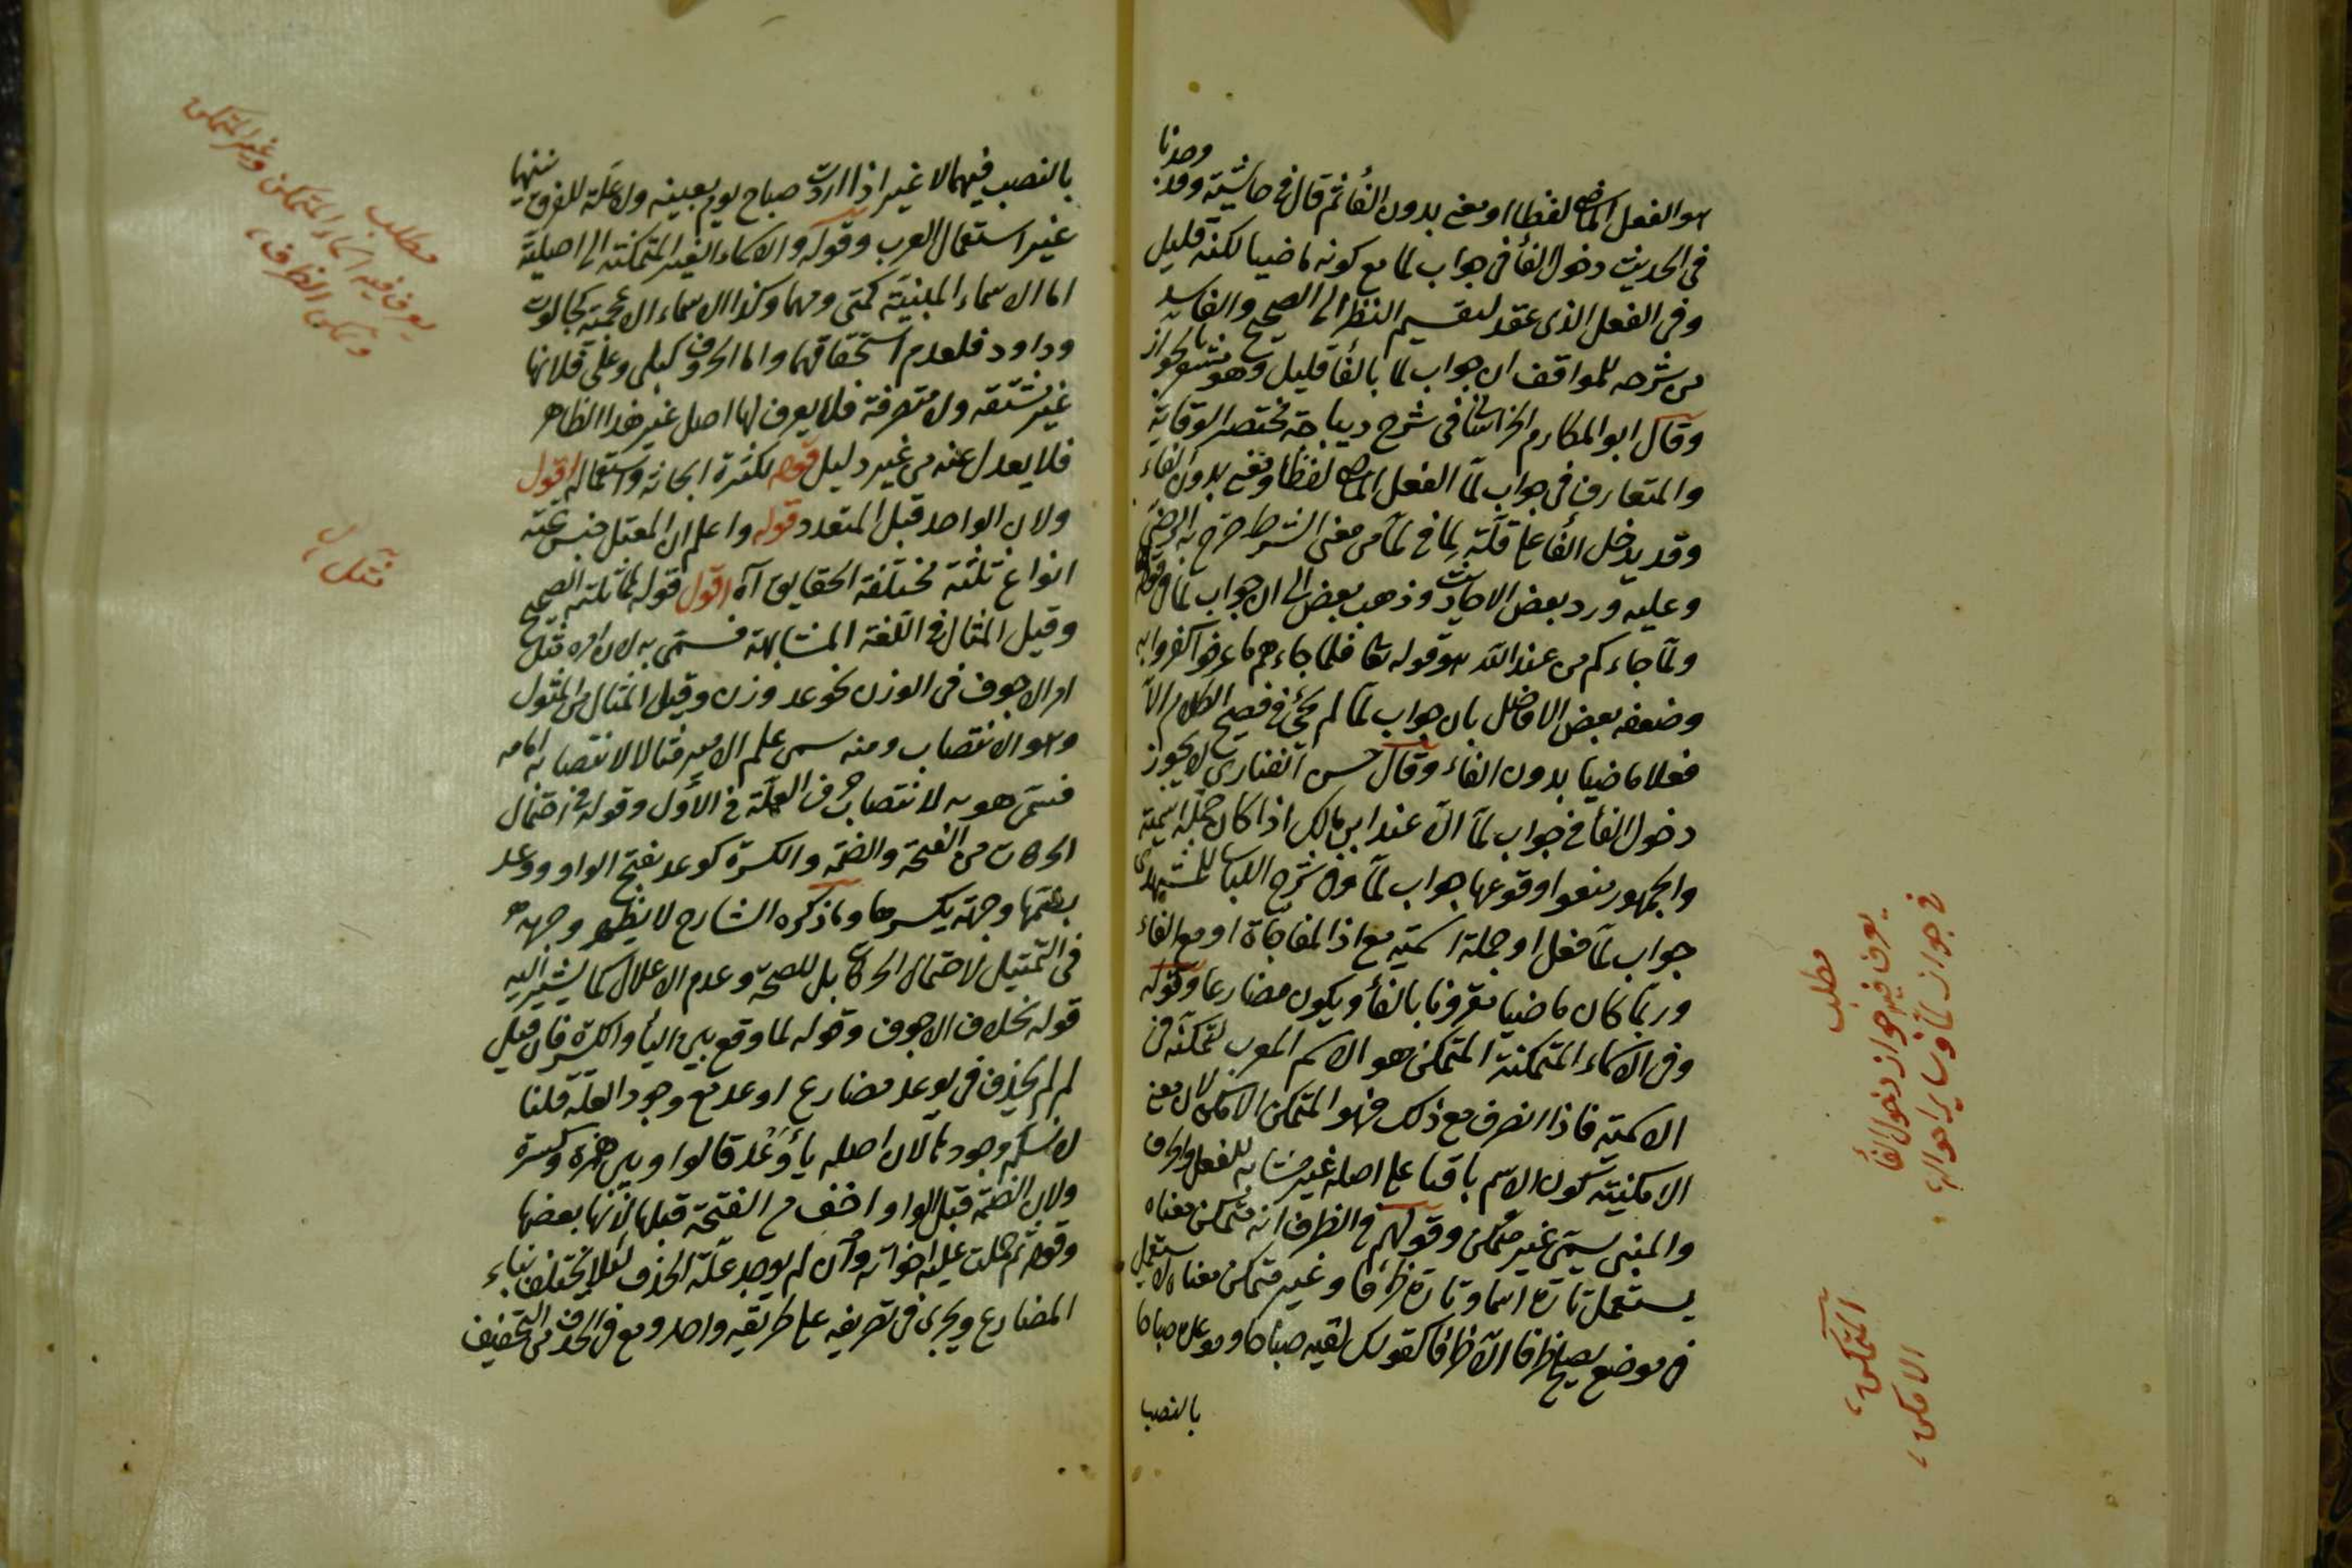 هو الفعل الماضي لفظا او معنى بدون الفأ ثم قال في حاشيته وقد وجدنا
في الحديث دخول الفأ في جواب لما مع كونه ماضيا لكنه قليل
وفي الفعل الذى عقد لتقسيم النظر الى الصحيح والفاسد
من شرحه للمواقف ان جواب لما بالفأ قليل وهو مشعر بالجواز
وقال ابو المكارم في شرح ديباجة مختصر الوقاية
والمتعارف في جواب لمّا الفعل الماضي لفظا او معنى بدون الفاء
وقد يدخل الفأ على قلّة لما في لمّا من معنى الشرط صرّح به الرضي
وعليه ورد بعض الاحاديث وذهب بعض الى ان جواب لمّا في قوله
ولمّا جاءكم من عند الله هو قوله تعا فلما جاءهم ما عرفوا كفروا به
وضعفه بعض الافاضل بان جواب لمّا لم يجئ في فصيح الكلام الاّ
فعلا ماضيا بدون الفاء وقال حسن الفنارى لا يجوز
دخول الفأ في جواب لمّا الاّ عند ابن مالك اذا كان جملة اسمية
والجمهور منعوا وقوعها جواب لمّا وفي شرح اللباب للمشهدى
جواب لمّا فعل او جملة اسمية مع اذا المفاجأة او مع الفاء
وربّما كان ماضيا مقرونا بالفأ ويكون مضارعا وقوله
وفي الاسماء المتمكنة المتمكن هو الاسم المعرب لتمكنه في
الاسمية فاذا انصرف مع ذلك فهو المتمكن الامكن لان معنى
الامكنية كون الاسم باقيا على اصله غير مشابه للفعل والحرف
والمبنى يسمّى غير متمكن وقولهم في الظرف انه متمكن معناه
يستعمل تارة اسما وتارة ظرفا وغير متمكن معناه لا يستعمل
في موضع يصلح ظرفا الاّ ظرفا كقولك لقيته صباحا وموعده صباحا
بالنصب
مطلب
يعرف فيه جواز دخول الفأ
في جواز لمّا وساير احوالها
المتمكن
الامكن
بالنصب فيهما لا غير اذا اردت صباح يوم بعينه ولا علّة للفرق بينهما
غير استعمال العرب وقوله والاسماء الغير المتمكنة الى اصلية
اما الاسماء المبنية كمتى ومهما وكذا الاسماء الاعجمية كجالوت
وداود فلعدم اشتقاقهما واما الحروف كبلى وعلى فلانها
غير مشتقه ولا متصرفة فلا يعرف لها اصل غير هذا الظاهر
فلا يعدل عنه من غير دليل قوله لكثرة ابحاثه واستعماله اقول
ولان الواحد قبل المتعدد قوله واعلم ان المعتل جنس تحته
انواع ثلثة مختلفة الحقايق آه اقول قوله لمماثلته الصحيح
وقيل المثال في اللغة المشابهة فسمّى به لان امره مثل
امر الاجوف في الوزن نحو عد وزن وقيل المثال من المثول
وهو الانتصاب ومنه سمى علم الامير مثالا لانتصابه امامه
فسمّى هو به لانتصاب حرف العلّة في الاول وقوله في احتمال
الحركات من الفتحة والضمّة والكسرة كوعد بفتح الواو ووعد
بضمّها وجهة بكسرها وما ذكره الشارح لا يظهر وجهه
في التمثيل لاحتمال الحركات بل للصحّة وعدم الاعلال كما يشير اليه
قوله بخلاف الاجوف وقوله لما وقع بين اليأ والكسرة فان قيل
لم لم يحذف في يوعد مضارع اوعد مع وجود العلّة قلنا
لا نسلّم وجودها لان اصله يأوعد قالوا وبين همزة وكسرة
ولان الضمّة قبل الواو اخف من الفتحة قبلها لانّها بعضها
وقوله ثم حملت عليه اخواته وان لم يوجد علّة الحذف لئلا يختلف بناء
المضارع ويجرى في تصريفه على طريقة واحد ومع في الحذف من التخفيف
مطلب
يعرف فيه اسماء المتمكن وغير المتمكن
وتمكن الظرف